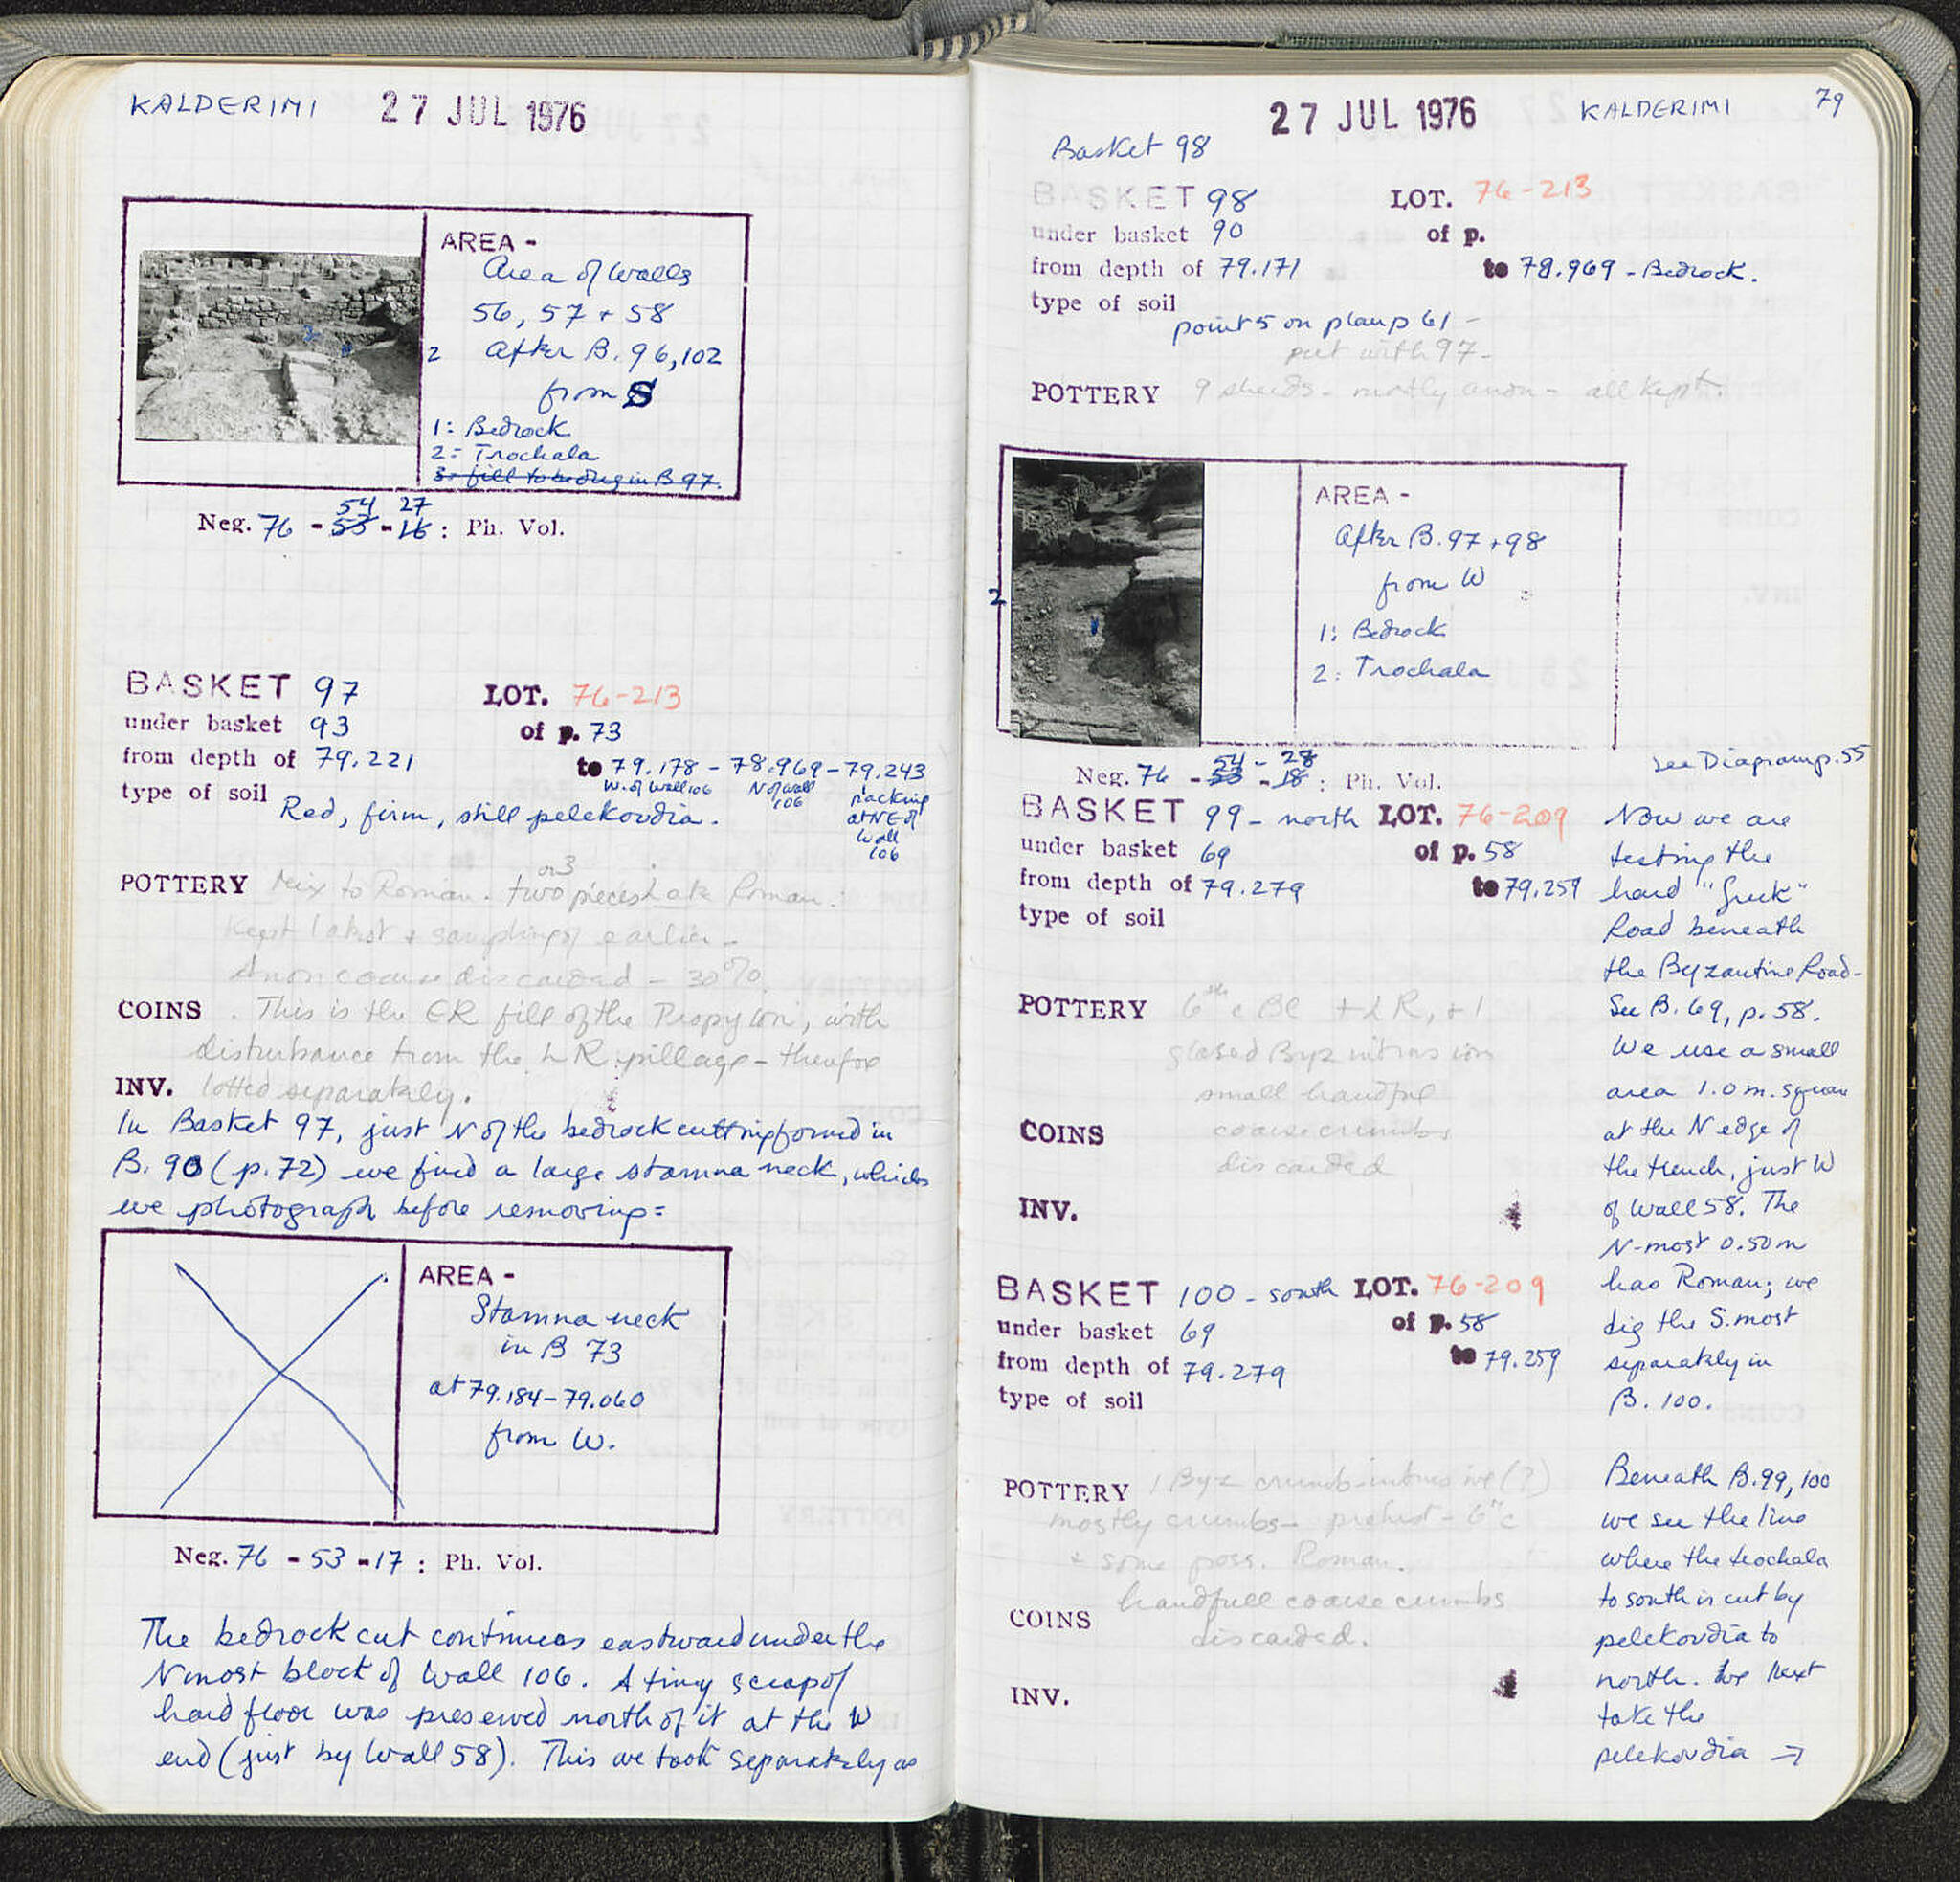 KALDERIMI 27 JUL 1976
AREA -
Area of Walls
56, 57 + 58
2 After B. 96, 102
from S
1: Bedrock
2: Trochala
3: fill to be dug in B 97.
54 27
Neg. 76 - 53 - 16 : Ph. Vol.
BASKET 97 LOT. 76-213
under basket 93 of p. 73
from depth of 79.221 to 79.178 - 78.969 - 79.243
W. of Wall 106 N of Wall 106 packing at NE of Wall 106
type of soil Red, firm, still pelekoudia.
or 3
POTTERY Mix to Roman. two pieces Late Roman.
Kept latest + sampling of earlier -
Anon coarse discarded - 30%.
COINS . This is the ER fill of the Propylon, with
disturbance from the LR pillage - therefore
INV. lotted separately.
In Basket 97, just N of the bedrock cutting found in
B. 90 (p. 72) we find a large stamna neck, which
we photograph before removing:
AREA -
Stamna neck
in B 73
at 79.184 - 79.060
from W.
Neg. 76 - 53 - 17 : Ph. Vol.
The bedrock cut continues eastward under the
Nmost block of Wall 106. A tiny scrap of
hard floor was preserved north of it at the W
end (just by Wall 58). This we took separately as
27 JUL 1976 KALDERIMI 79
Basket 98
BASKET 98 LOT. 76-213
under basket 90 of p.
from depth of 79.171 to 78.969 - Bedrock.
type of soil
point 5 on plan p 61 -
put with 97 -
POTTERY 9 sherds - mostly anon - all kept.
AREA -
After B. 97 + 98
from W
1: Bedrock
2: Trochala
2
54 - 28
Neg. 76 - 53 - 18 : Ph. Vol.
BASKET 99 - north LOT. 76-209
under basket 69 of p. 58
from depth of 79.279 to 79.259
type of soil
POTTERY 6th c BC + LR, + 1
glazed Byz intrusion
small handful
COINS coarse crumbs
discarded
INV.
BASKET 100 - south LOT. 76-209
under basket 69 of p. 58
from depth of 79.279 to 79.259
type of soil
POTTERY 1 Byz crumb - intrusive (?)
mostly crumbs - prehist - 6th c
+ some poss. Roman.
handfull coarse crumbs
COINS discarded.
INV.
see Diagram p. 55
Now we are
testing the
hard "Greek"
Road beneath
the Byzantine Road -
See B. 69, p. 58.
We use a small
area 1.0 m. square
at the N edge of
the trench, just W
of Wall 58. The
N-most 0.50 m
has Roman; we
dig the S. most
separately in
B. 100.
Beneath B. 99, 100
we see the line
where the trochala
to south is cut by
pelekoudia to
north. We next
take the
pelekoudia →